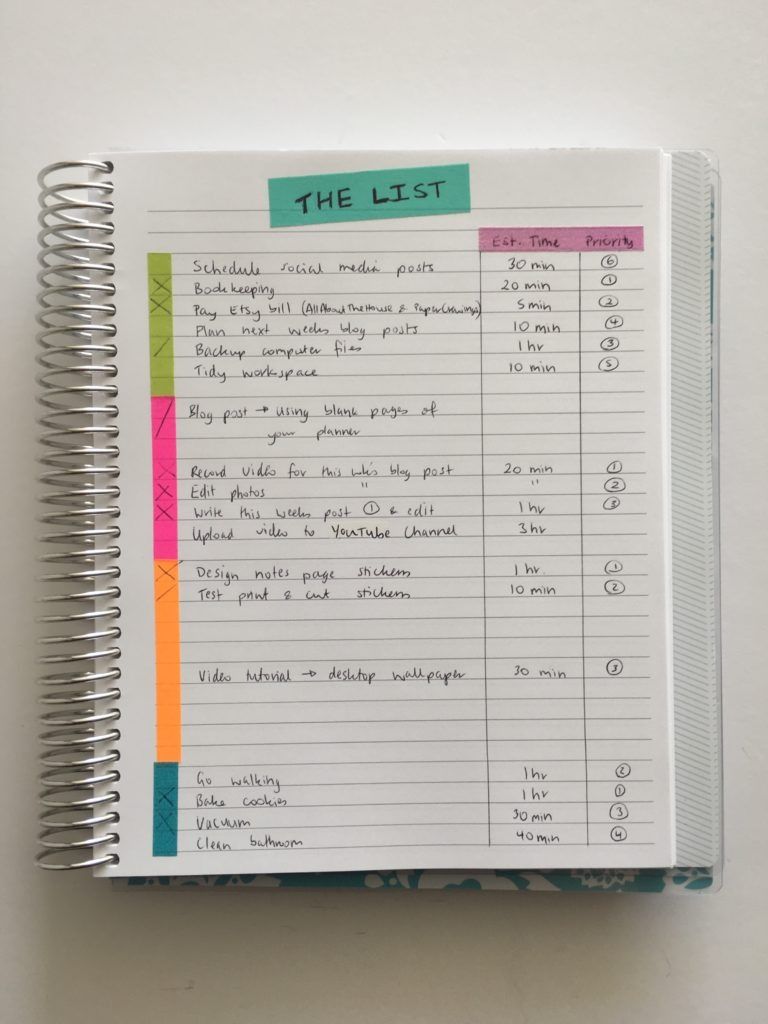 THE LIST
Est. Time Priority
Schedule social media posts 30 min 6
X Bookkeeping 20 min 1
X Pay Etsy bill (AllAboutTheHouse & PaperCravings) 5 min 2
Plan next weeks blog posts 10 min 4
/ Backup computer files 1 hr 3
Tidy workspace 10 min 5
/ Blog post → using blank pages of
your planner
X Record video for this wk's blog post 20 min 1
X Edit photos " " 2
X Write this weeks post 1 & edit 1 hr 3
Upload video to YouTube Channel 3 hr
X Design notes page stickers 1 hr. 1
/ Test print & cut stickers 10 min 2
Video tutorial → desktop wallpaper 30 min 3
Go walking 1 hr 2
X Bake cookies 1 hr 1
X Vacuum 30 min 3
Clean bathroom 40 min 4